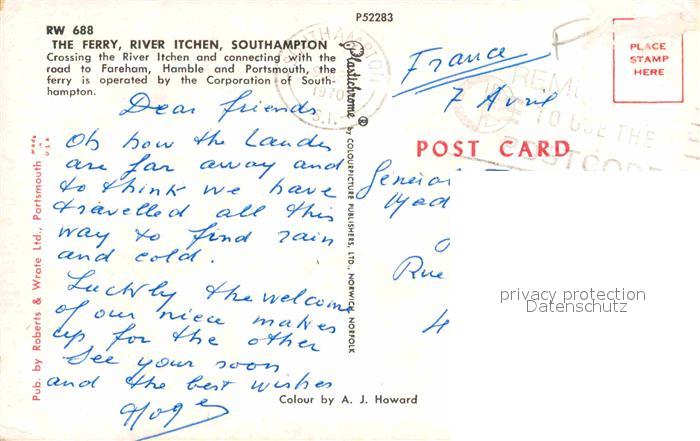 P52283
RW 688
THE FERRY, RIVER ITCHEN, SOUTHAMPTON
Crossing the River Itchen and connecting with the
road to Fareham, Hamble and Portsmouth, the
ferry is operated by the Corporation of South-
hampton.
Dear friends
Oh how the Landes
are far away and
to think we have
travelled all this
way to find rain
and cold.
Luckly the welcome
of our niece makes
up for the other
See your soon
and the best wishes
Pub. by Roberts & Wrate Ltd., Portsmouth
MADE
U S A
Plastichrome ® by COLOURPICTURE PUBLISHERS, LTD., NORWICH, NORFOLK
SOUTHAMPTON
1970
REM
TO USE THE
POSTCODE
PLACE
STAMP
HERE
France
7 Avril
POST CARD
General
Rue
4
privacy protection
Datenschutz
Colour by A. J. Howard